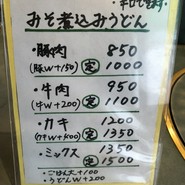 みそ煮込みうどん
・豚肉 850
(豚W+150) 定 1000
・牛肉 950
(牛W+200) 定 1100
・カキ 1200
(カキW+500) 定 1350
・ミックス 1350
定 1500
・ごはん大+100
・うどんW+200